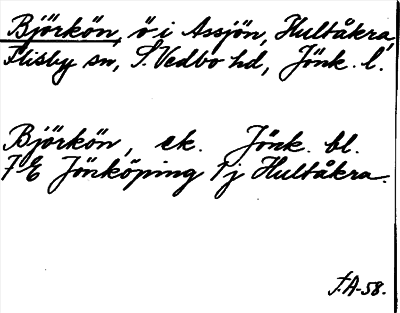 Björkön, ö i Assjön, Hultåkra,
Flisby sn, S. Vedbo hd, Jönk. l.
Björkön, ek. Jönk. bl.
7 E Jönköping 1 j Hultåkra.
F.A-58.